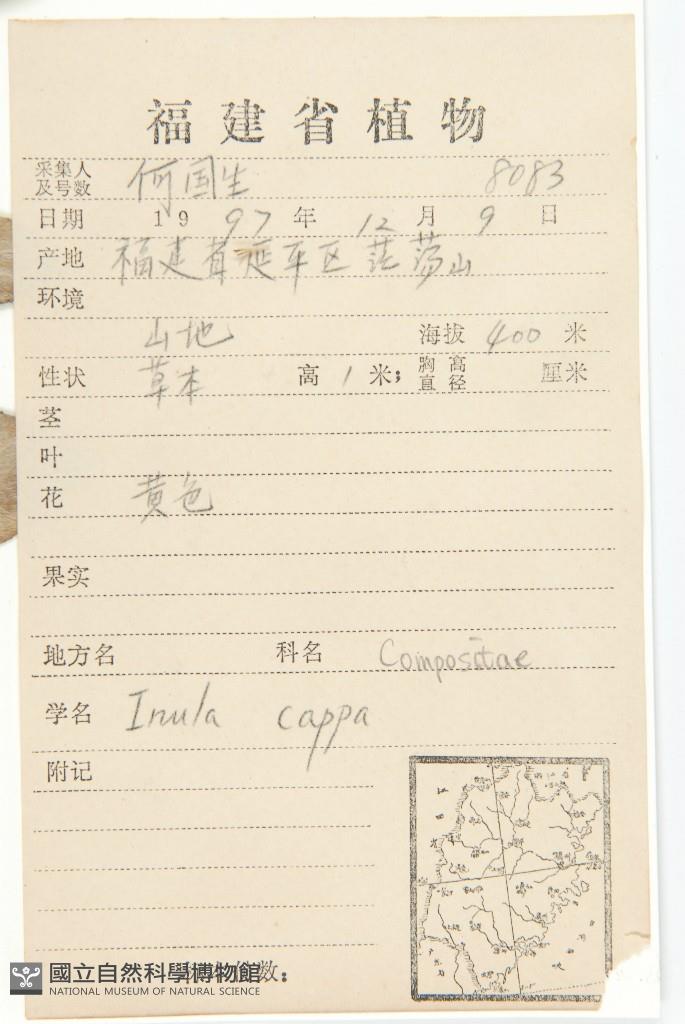 福建省植物
采集人及号数 何国生 8083
日期 1997年12月9日
产地 福建省延平区茫荡山
环境
山地 海拔 400 米
性状 草本 高 1 米; 胸高直径 厘米
茎
叶
花 黄色
果实
地方名 科名 Compositae
学名 Inula cappa
附记
数:
國立自然科學博物館
NATIONAL MUSEUM OF NATURAL SCIENCE